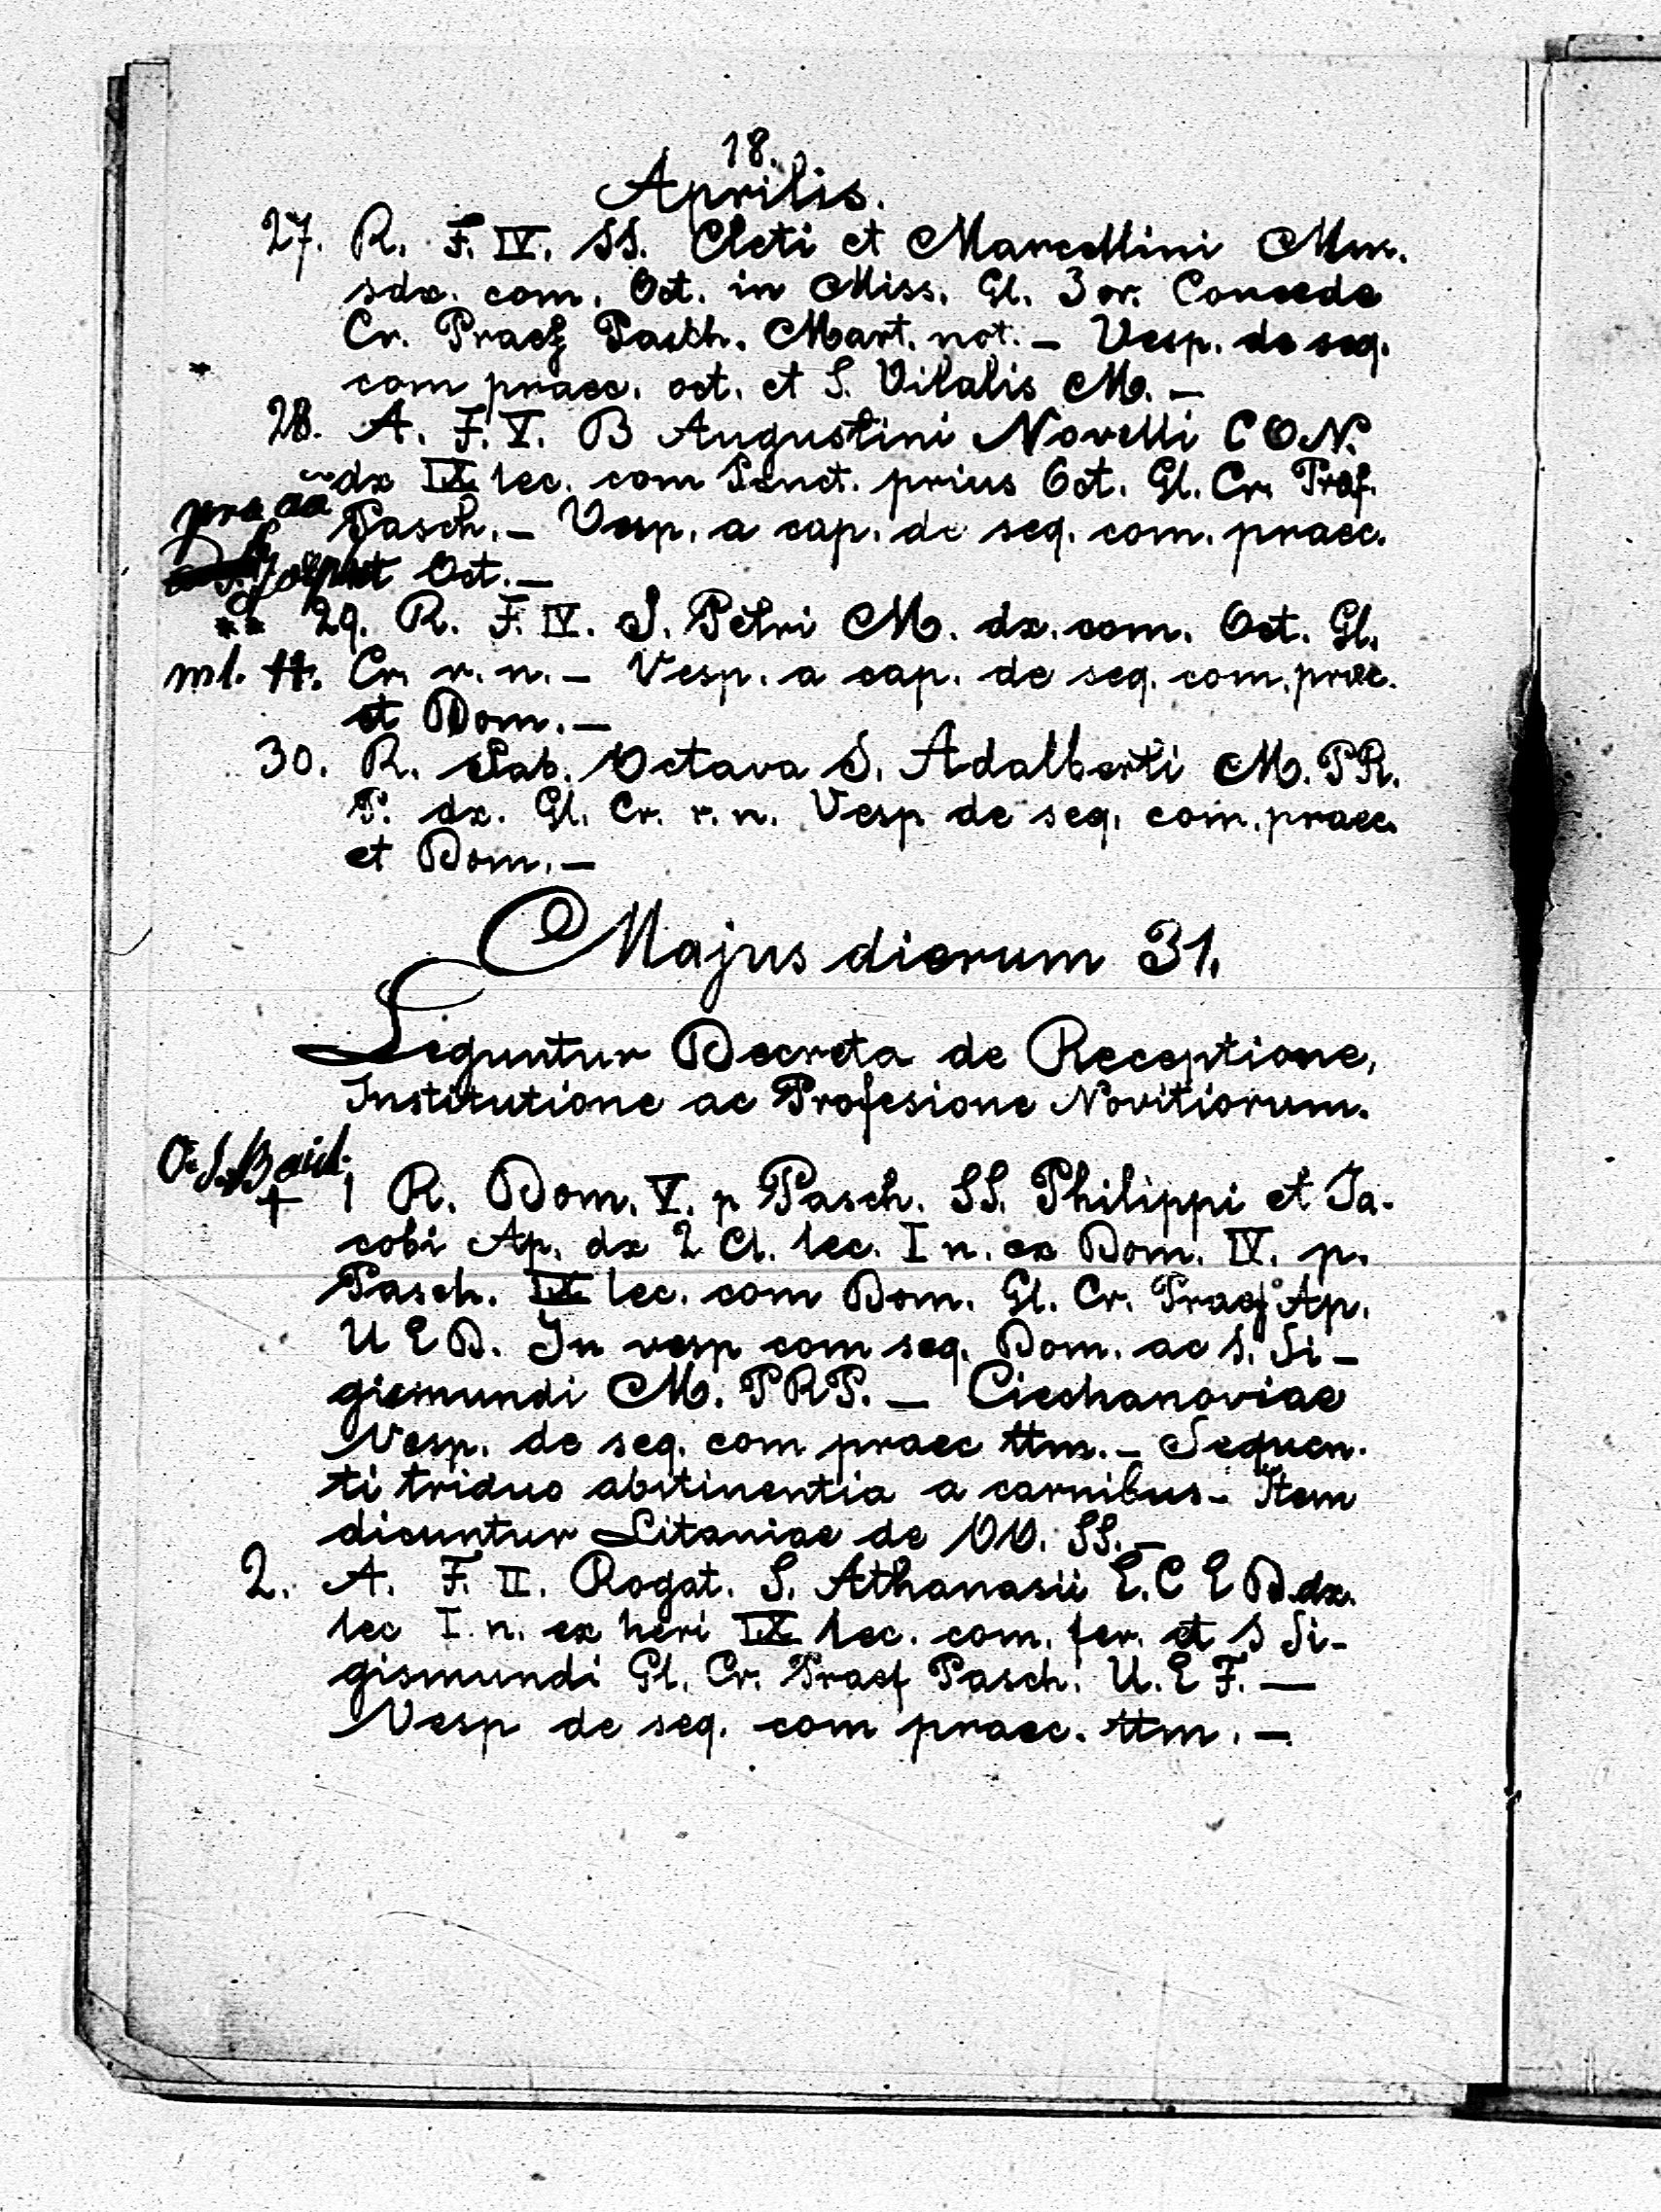 18.
Aprilis.
27. R. F. IV. SS. Cleti et Marcellini Mm.
sdx. com. Oct. in Miss. Gl. 3 or. Concede
Cr. Praef Pasch. Mart. not. – Vesp. de seq.
* com praec. oct. et S. Vitalis M. –
28. A. F. V. B Augustini Novelli C O N.
dx IX lec. com Sanct. prius Oct. Gl. Cr. Praf.
Pasch. – Vesp. a cap. de seq. com. praec.
et Oct. –
** 29. R. F. IV. S. Petri M. dx. com. Oct. Gl.
Cr. r. n. – Vesp. a cap. de seq. com. praec.
et Dom. –
30. R. Sab. Octava S. Adalberti M. PR.
P. dx. Gl. Cr. r. n. Vesp de seq. com. praec.
et Dom. –
Majus dierum 31.
Leguntur Decreta de Receptione,
Institutione ac Profesione Novitiorum.
+ 1 R. Dom. V. p Pasch. SS. Philippi et Ja-
cobi Ap. dx 2 Cl. lec. I n. ex Dom. IV. p.
Pasch. IX lec. com Dom. Gl. Cr. Praef Ap.
U E D. In vesp com seq. Dom. ac S. Si-
gismundi M. PRP. – Ciechanoviae
Vesp. de seq. com praec ttm. – Sequen-
ti triduo abstinentia a carnibus – Item
dicuntur Litaniae de OO. SS. –
2. A. F. II. Rogat. S. Athanasii E. C E D. dx.
lec I. n. ex heri IX lec. com. fer. et S Si-
gismundi Gl. Cr. Praef Pasch. U. E F. –
Vesp de seq. com praec. ttm. –